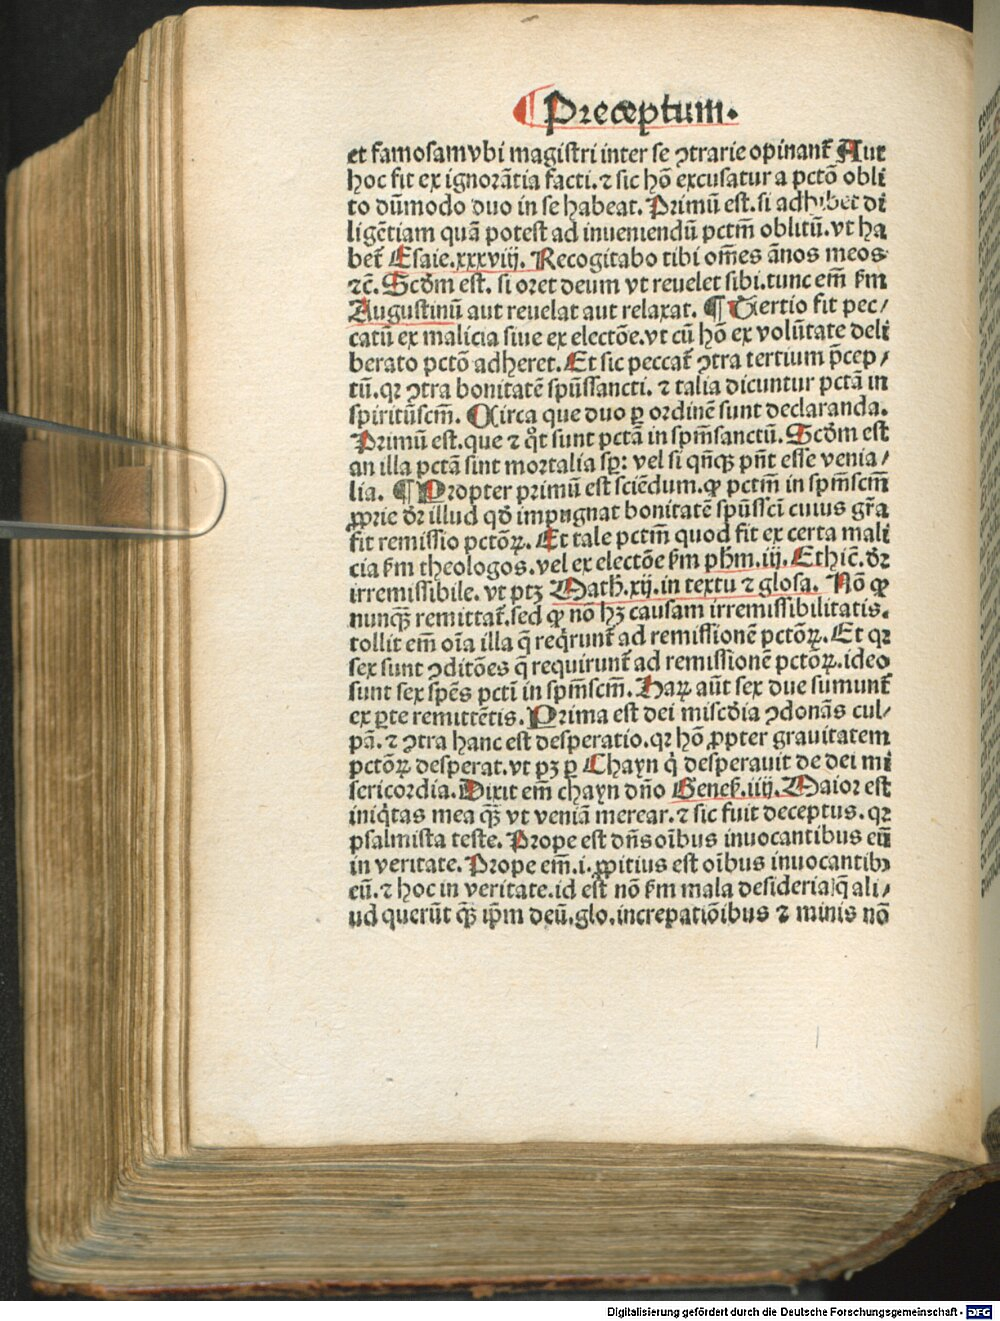 ¶ Preceptum.
et famosam vbi magistri inter se ꝯtrarie opinant᷑ Aut
hoc fit ex ignorãtia facti. ⁊ sic hõ excusatur a pctõ obli
to dũmodo duo in se habeat. Primũ est. si adhibet di
ligẽtiam quã potest ad inueniendũ pctm̃ oblitũ. vt ha
bet᷑ Esaie. xxxviij. Recogitabo tibi om̃es ãnos meos
⁊c̃. Scd̃m est. si oret deum vt reuelet sibi. tunc em̃ ẜm
Augustinũ aut reuelat aut relaxat. ¶ Tertio fit pec/
catũ ex malicia siue ex electõe. vt cũ hõ ex volũtate deli
berato pctõ adheret. Et sic peccat᷑ ꝯtra tertium p̃cep/
tũ. qꝛ ꝯtra bonitatẽ spũssancti. ⁊ talia dicuntur pctã in
spiritũscm̃. Circa que duo ꝑ ordinẽ sunt declaranda.
Primũ est. que ⁊ q̃t sunt pctã in spm̃sanctũ. Scd̃m est
an illa pctã sint mortalia sꝑ: vel si qñqꝫ pñt esse venia/
lia. ¶ Propter primũ est sciẽdum. ꝙ pctm̃ in spm̃scm̃
ꝓprie dr̃ illud qd̃ impugnat bonitatẽ spũssci cuius gr̃a
fit remissio pctõꝝ. Et tale pctm̃ quod fit ex certa mali
cia ẜm theologos. vel ex electõe ẜm ph̃m. iij. Ethic̃. dr̃
irremissibile. vt ptꝫ Math̃. xij. in textu ⁊ glosa. Nõ ꝙ
nunqꝫ̃ remittat᷑. sed ꝙ nõ hꝫ causam irremissibilitatis.
tollit em̃ oĩa illa q̃ reqͥrunt᷑ ad remissionẽ pctõꝝ. Et qꝛ
sex sunt ꝯditões q̃ requirunt᷑ ad remissionẽ pctõꝝ. ideo
sunt sex spẽs pcti in spm̃scm̃. Haꝝ aũt sex due sumunt᷑
ex ꝑte remittẽtis. Prima est dei misc̃dia ꝯdonãs cul/
pã. ⁊ ꝯtra hanc est desperatio. qꝛ hõ ꝓpter grauitatem
pctõꝝ desperat. vt pꝫ ꝑ Chayn qͥ desperauit de dei mi
sericordia. Dixit em̃ chayn dño Geneẜ. iiij. Maior est
iniqͥtas mea qꝫ̃ vt veniã merear. ⁊ sic fuit deceptus. qꝛ
psalmista teste. Prope est dñs oĩbus inuocantibus eũ
in veritate. Prope em̃. i. ꝓpitius est oĩbus inuocantibꝫ
eũ. ⁊ hoc in veritate. id est nõ ẜm mala desideria q̃ ali/
ud querũt qꝫ̃ ip̃m deũ. glo. increpatiõibus ⁊ minis nõ
Digitalisierung gefördert durch die Deutsche Forschungsgemeinschaft - DFG